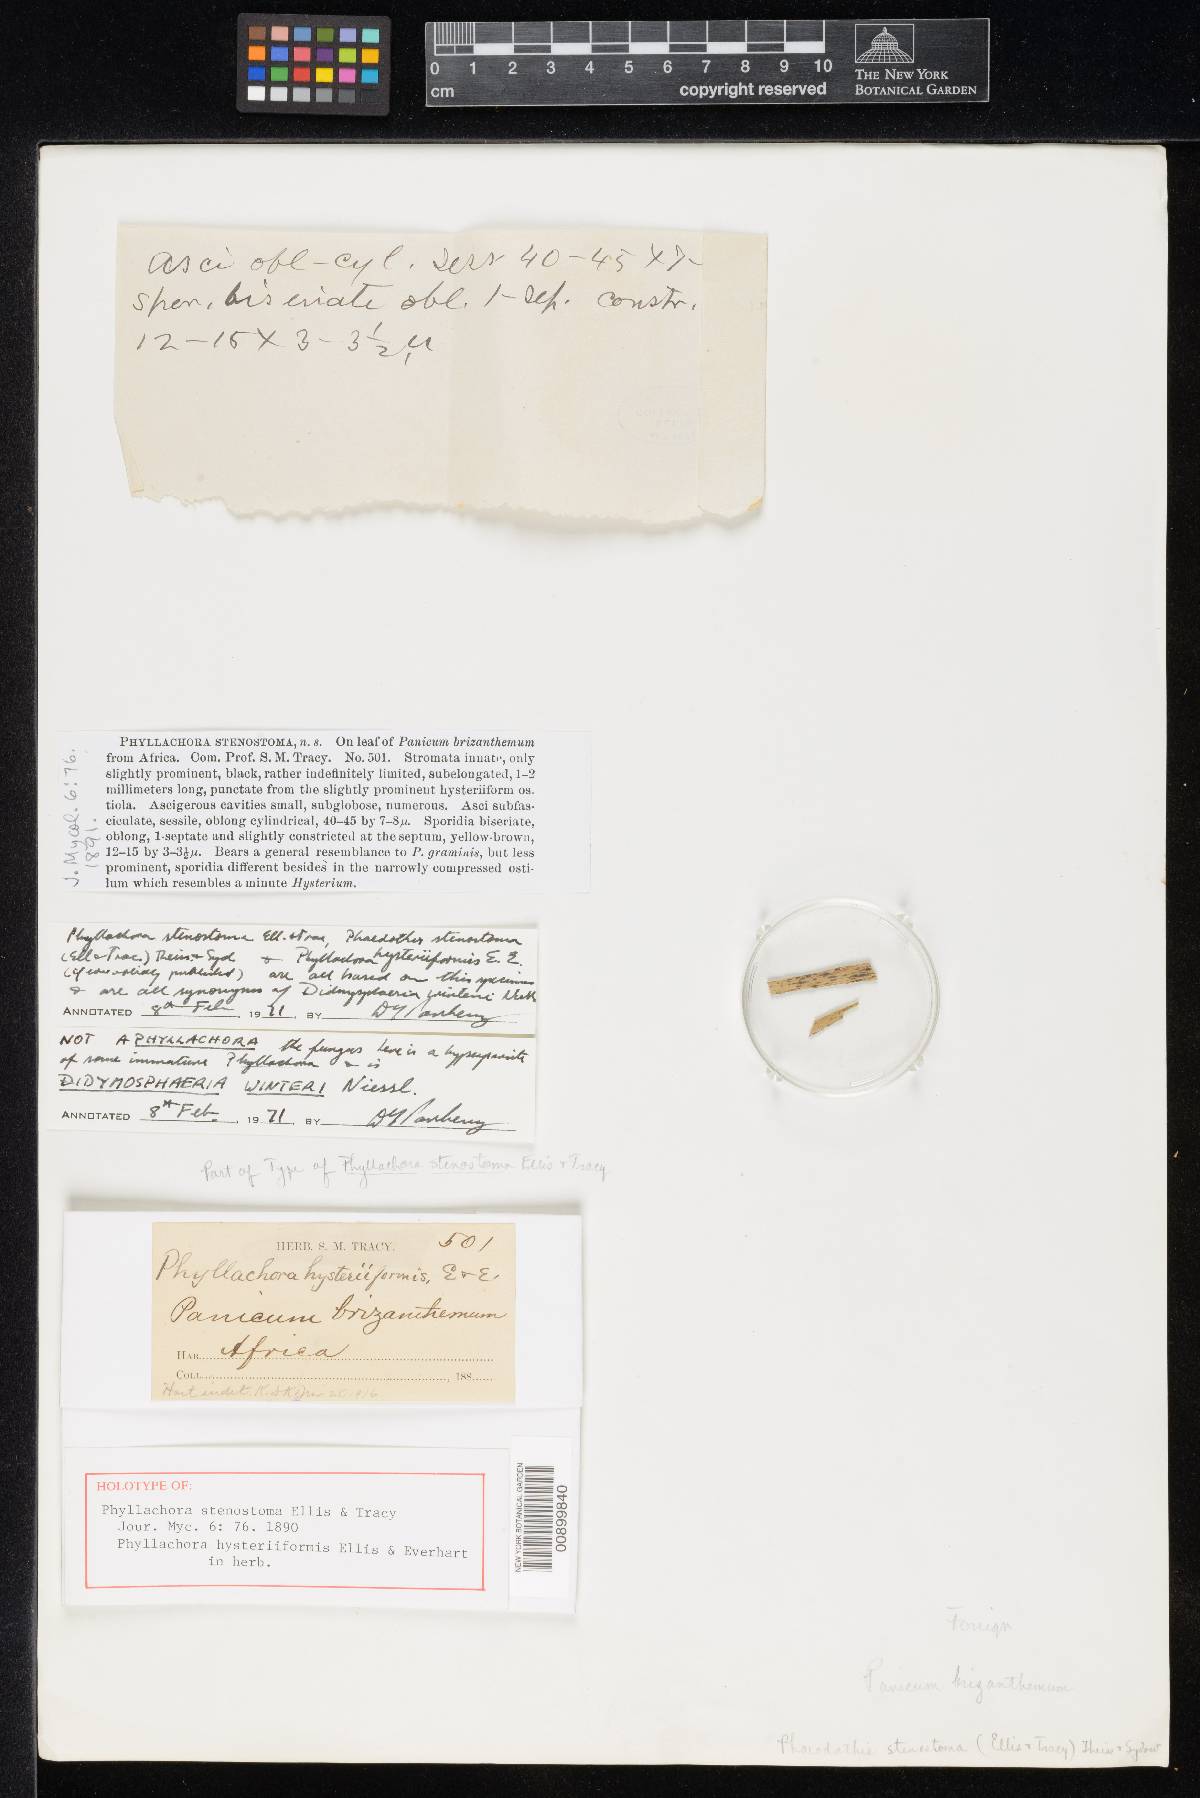 0 1 2 3 4 5 6 7 8 9 10
cm
copyright reserved
THE NEW YORK
BOTANICAL GARDEN
Asci obl-cyl. sess 40-45 x 7-
spor. biseriate obl. 1-sep. constr.
12-15 x 3-3½ µ
J. Mycol. 6:76.
1891.
PHYLLACHORA STENOSTOMA, n. s. On leaf of Panicum brizanthemum
from Africa. Com. Prof. S. M. Tracy. No. 501. Stromata innate, only
slightly prominent, black, rather indefinitely limited, subelongated, 1-2
millimeters long, punctate from the slightly prominent hysteriiform os-
tiola. Ascigerous cavities small, subglobose, numerous. Asci subfas-
ciculate, sessile, oblong cylindrical, 40-45 by 7-8µ. Sporidia biseriate,
oblong, 1-septate and slightly constricted at the septum, yellow-brown,
12-15 by 3-3½µ. Bears a general resemblance to P. graminis, but less
prominent, sporidia different besides in the narrowly compressed osti-
lum which resembles a minute Hysterium.
Phyllachora stenostoma Ell. & Trac, Phaeodothis stenostoma
(Ell & Trac.) Theiss & Syd & Phyllachora hysteriiformis E. E.
(if ever validly published) are all based on this specimen
& are all synonyms of Didymosphaeria winteri Niessl
ANNOTATED 8th Feb 1971, BY D G Parbery
NOT A PHYLLACHORA the fungus here is a hyperparasite
of some immature Phyllachora & is
DIDYMOSPHAERIA WINTERI Niessl.
ANNOTATED 8th Feb. 1971, BY D G Parbery
Part of Type of Phyllachora stenostoma Ellis & Tracy
HERB. S. M. TRACY. 501
Phyllachora hysteriiformis, E & E.
Panicum brizanthemum
HAB. Africa
COLL. , 188
Host indet.
HOLOTYPE OF:
Phyllachora stenostoma Ellis & Tracy
Jour. Myc. 6: 76. 1890
Phyllachora hysteriiformis Ellis & Everhart
in herb.
NEW YORK BOTANICAL GARDEN
00899840
Foreign
Panicum brizanthemum
Phaeodothis stenostoma (Ellis & Tracy) Theiss & Sydow